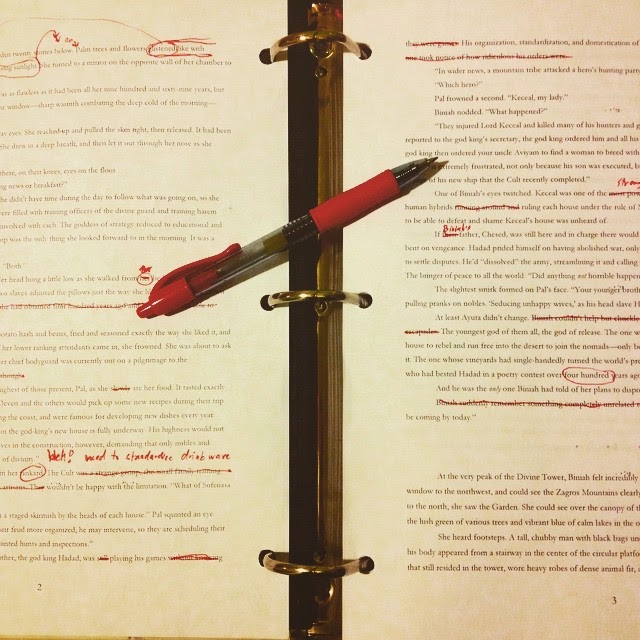 twenty stones below. Palm trees and flowers glistened like with
sunlight. She turned to a mirror on the opposite wall of her chamber to
as flawless as it had been all her nine hundred and sixty-nine years, but
window—sharp warmth combatting the deep cold of the morning—
eyes. She reached up and pulled the skin tight, then released. It had been
She drew in a deep breath, and then let it out through her nose as she
there, on their knees, eyes on the floor.
news or breakfast?"
didn't have time during the day to follow what was going on, so she
were filled with training officers of the divine guard and training harem
involved with each. The goddess of strategy reduced to educational and
was the only thing she looked forward to in the morning. It was a
"Both."
head hung a little low as she walked from
slaves adjusted the pillows just the way she
She had obtained four hundred years
potato hash and beans, fried and seasoned exactly the way she liked it, and
her lower ranking attendants came in, she frowned. She was about to ask
chief bodyguard was currently out on a pilgrimage to the
highest of those present, Pal, as she slowly ate her food. It tasted exactly
Deven and the others would pick up some new recipes during their trip
the coast, and were famous for developing new dishes every year.
on the god-king's new house is fully underway. His highness would not
in the construction, however, demanding that only nobles and
of divinity."
Heh! need to standardize drink ware
in her tankard. The Cult was a strange group, the small family, training
artisans. They wouldn't be happy with the limitation. "What of Sofenasa
a staged skirmish by the heads of each house." Pal squinted an eye
their feud more organized, he may intervene, so they are scheduling their
hunts and inspections."
the god king Hadad, was still playing his games without thinking
2
they were games. His organization, standardization, and domestication of
one took notice of how ridiculous his orders were.
"In wider news, a mountain tribe attacked a hero's hunting
"Which hero?"
Pal frowned a second. "Keceal, my lady."
Biniah nodded. "What happened?"
"They injured Lord Keceal and killed many of his hunters and
reported to the god king's secretary, the god king ordered him and all his
god king then ordered your uncle Aviyam to find a woman to breed with
extremely frustrated, not only because his son was executed, b
of his new ship that the Cult recently completed."
strong
One of Biniah's eyes twitched. Keceal was one of the most
human hybrids running around and ruling each house under the rule of
to be able to defeat and shame Keceal's house was unheard of.
Biniah's
If father, Chesed, was still here and in charge there would
bent on vengeance. Hadad prided himself on having abolished war, only
to settle disputes. He'd "dissolved" the army, streamlining it and calling
The bringer of peace to all the world. "Did anything not horrible happen
The slightest smirk formed on Pal's face. "Your youngest broth
pulling pranks on nobles. 'Seducing unhappy wives,' as his head slave
At least Ayuta didn't change. Biniah couldn't help but chuckle
escapades. The youngest god of them all, the god of release. The one w
house to rebel and run free into the desert to join the nomads—only
it. The one whose vineyards had single-handedly turned the world's
who had bested Hadad in a poetry contest over four hundred years ago
And he was the only one Biniah had told of her plans to
Biniah suddenly remember something completely unrelated
be coming by today."
At the very peak of the Divine Tower, Biniah felt incredibly
window to the northwest, and could see the Zagros Mountains clearly
to the north, she saw the Garden. She could see over the canopy of
the lush green of various trees and vibrant blue of calm lakes in the
She heard footsteps. A tall, chubby man with black bags
his body appeared from a stairway in the center of the circular
that still resided in the tower, wore heavy robes of dense animal fir,
3